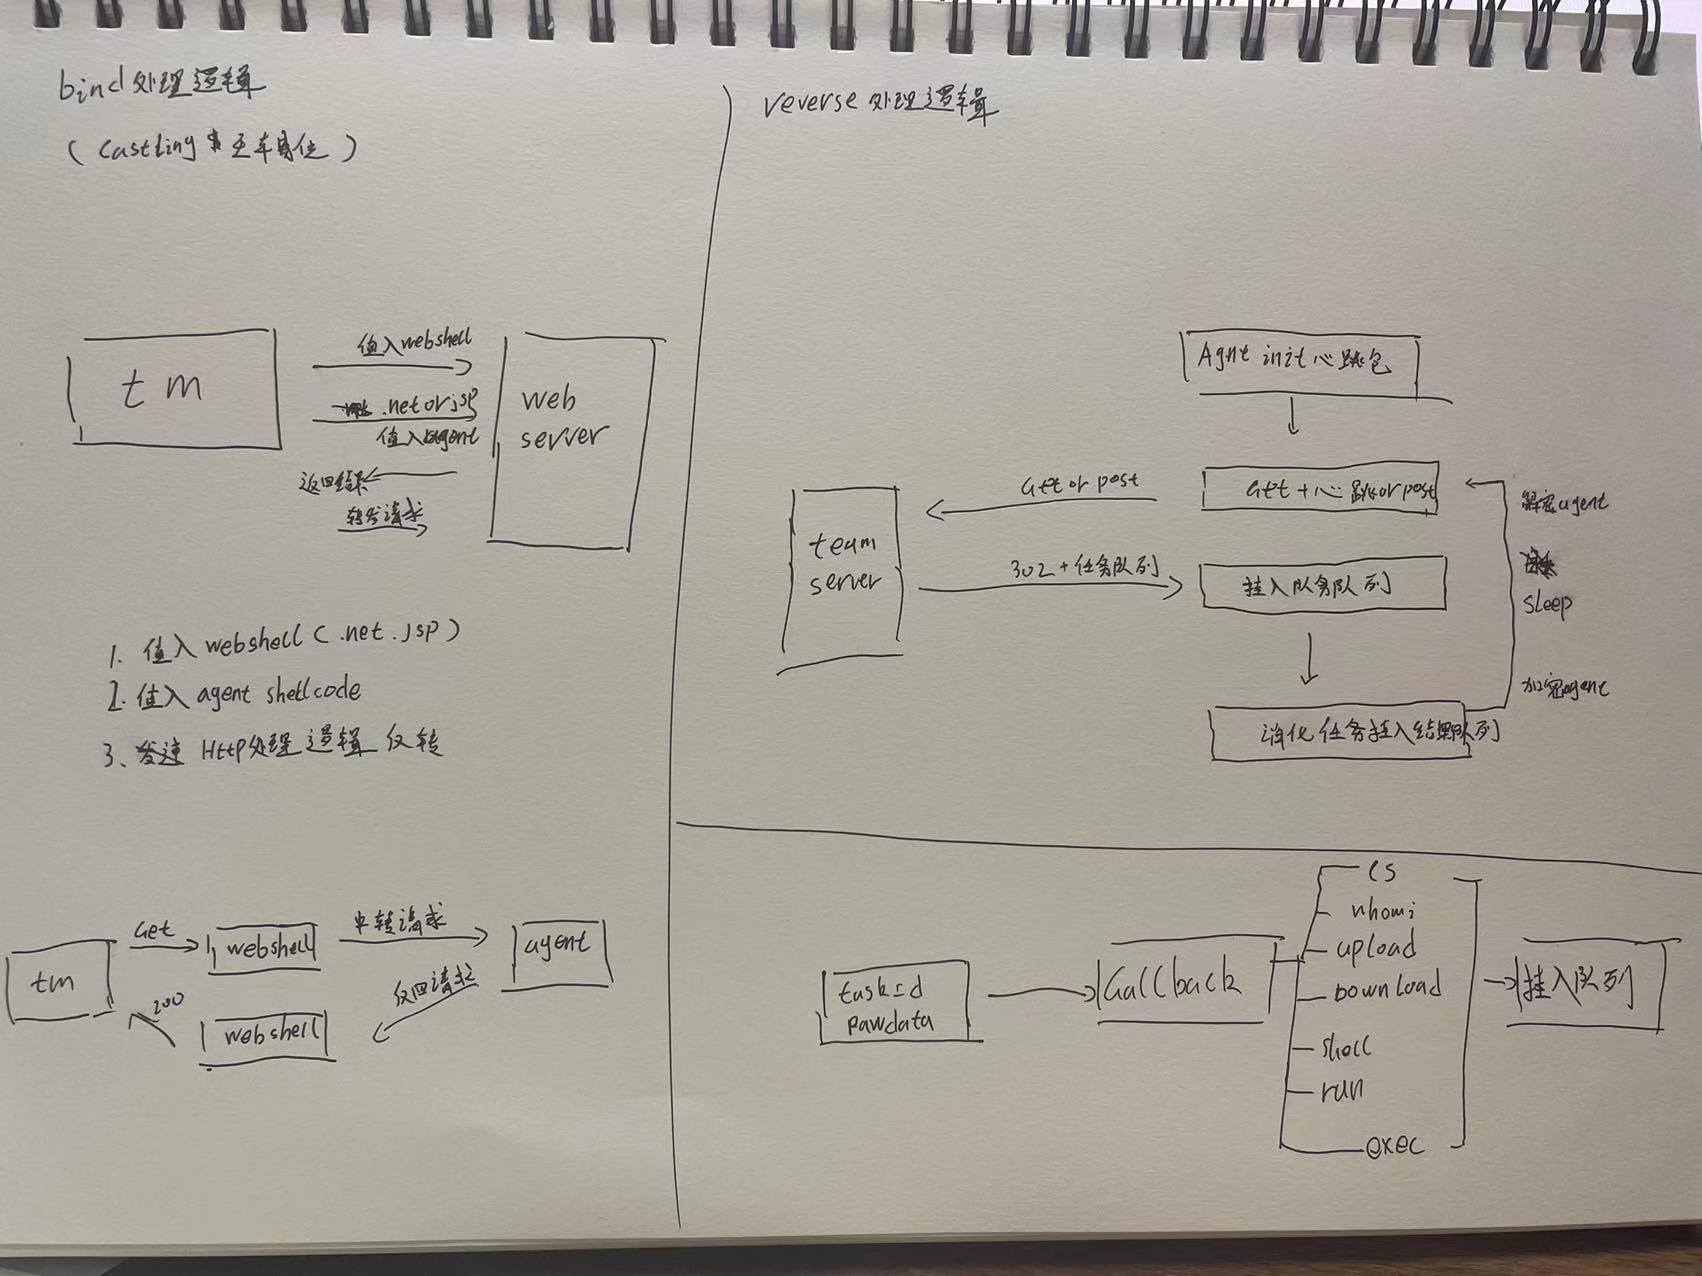 bind处理逻辑
(castling 王车易位)
tm
值入webshell
.net or jsp
值入agent
返回结果
转发请求
web
server
1. 值入 webshell( .net .jsp )
2. 值入 agent shellcode
3、发送 Http处理逻辑 仅转
tm
Get
webshell
中转请求
agent
仅回请求
webshell
200
reverse 处理逻辑
Agnt init心跳包
Get or post
Get+心跳or post
team
server
302+任务队列
挂入队务队列
消化任务挂入结果队列
解密agent
sleep
加密agent
taskid
rawdata
Callback
ls
whomi
upload
Download
shell
run
exec
挂入队列